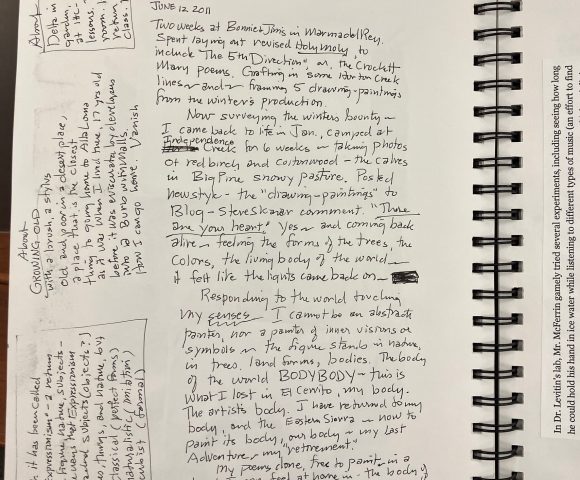 JUNE 12 2011
Two weeks at Bonnie + Jim's in Marina del Rey.
Spent laying out revised Holy Moly, to
include "The 5th Direction" or the Crockett
Mary poems. Grafting in some Horton Creek
lines and framing 5 drawing-paintings
from the winter's production.
Now surveying the winter's bounty —
I came back to life in Jan, camped at
Independence
Creek for 6 weeks — taking photos
of red birch and cottonwood — the calves
in Big Pine snowy pasture. Posted
new style — the "drawing-paintings" to
Blog — comment. "There
are your heart." Yes — and coming back
alive — feeling the forms of the trees, the
colors, the living body of the world —
it felt like the lights came back on —
Responding to the world touching
my senses. I cannot be an abstract
painter, nor a painter of inner visions or
symbols — the figure stands in nature,
in trees, land forms, bodies. The body
of the world BODYBODY — this is
what I lost in El Cerrito, my body.
The artists body. I have returned to my
body, and the Eastern Sierra — now to
paint its body, our body — my last
Adventure — my "retirement."
My poems done, free to paint — in a
feel at home in — the body of
About
Delta in
garden,
at
lessons
room. I
return
class.
About
GROWING OLD
with a brush, a stylus
old and poor in a desert place,
a place that is the closest
thing to going home to Alta Loma
as it was when I lived there, 17 yrs old
before it was eviscerated by developers
into a Burb with malls.
How I can go home. Vanish
it has been called
Expressionism" — a return
figure, nature, subjects —
means that Expressionism
subjects (objects?)
things, and nature, by
classical (perfect forms)
naturalistic (primitivism)
cubist (formal)
In Dr. Levitin's lab, Mr. McFerrin gamely tried several experiments, including seeing how long
he could hold his hand in ice water while listening to different types of music (an effort to find